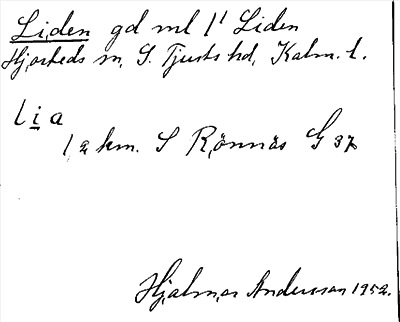 Liden gd ml 1¹ Liden
Hjorteds sn, S. Tjusts hd, Kalm. l.
lia
1,2 km. S Rönnäs G 37
Hjalmar Andersson 1952.